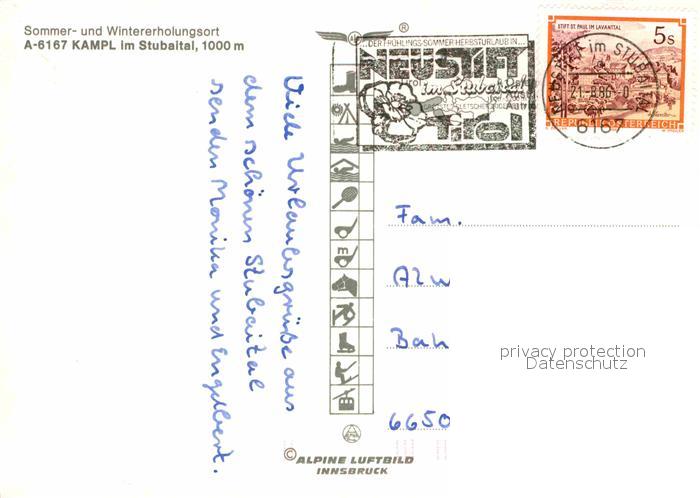 Sommer- und Wintererholungsort
A-6167 KAMPL im Stubaital, 1000 m
Viele Urlaubsgrüße aus
dem schönen Stubaital
senden Monika und Engelbert.
®
...DER FRÜHLINGS-SOMMER-HERBSTURLAUB IN...
NEUSTIFT
im Stubaital
Tirol
Austria
Tirol
STIFT ST. PAUL IM LAVANTTAL
5s
REPUBLIK ÖSTERREICH
im STUBAITAL
21.-8.86-0
6167
Fam.
Bah
6650
privacy protection
Datenschutz
© ALPINE LUFTBILD
INNSBRUCK